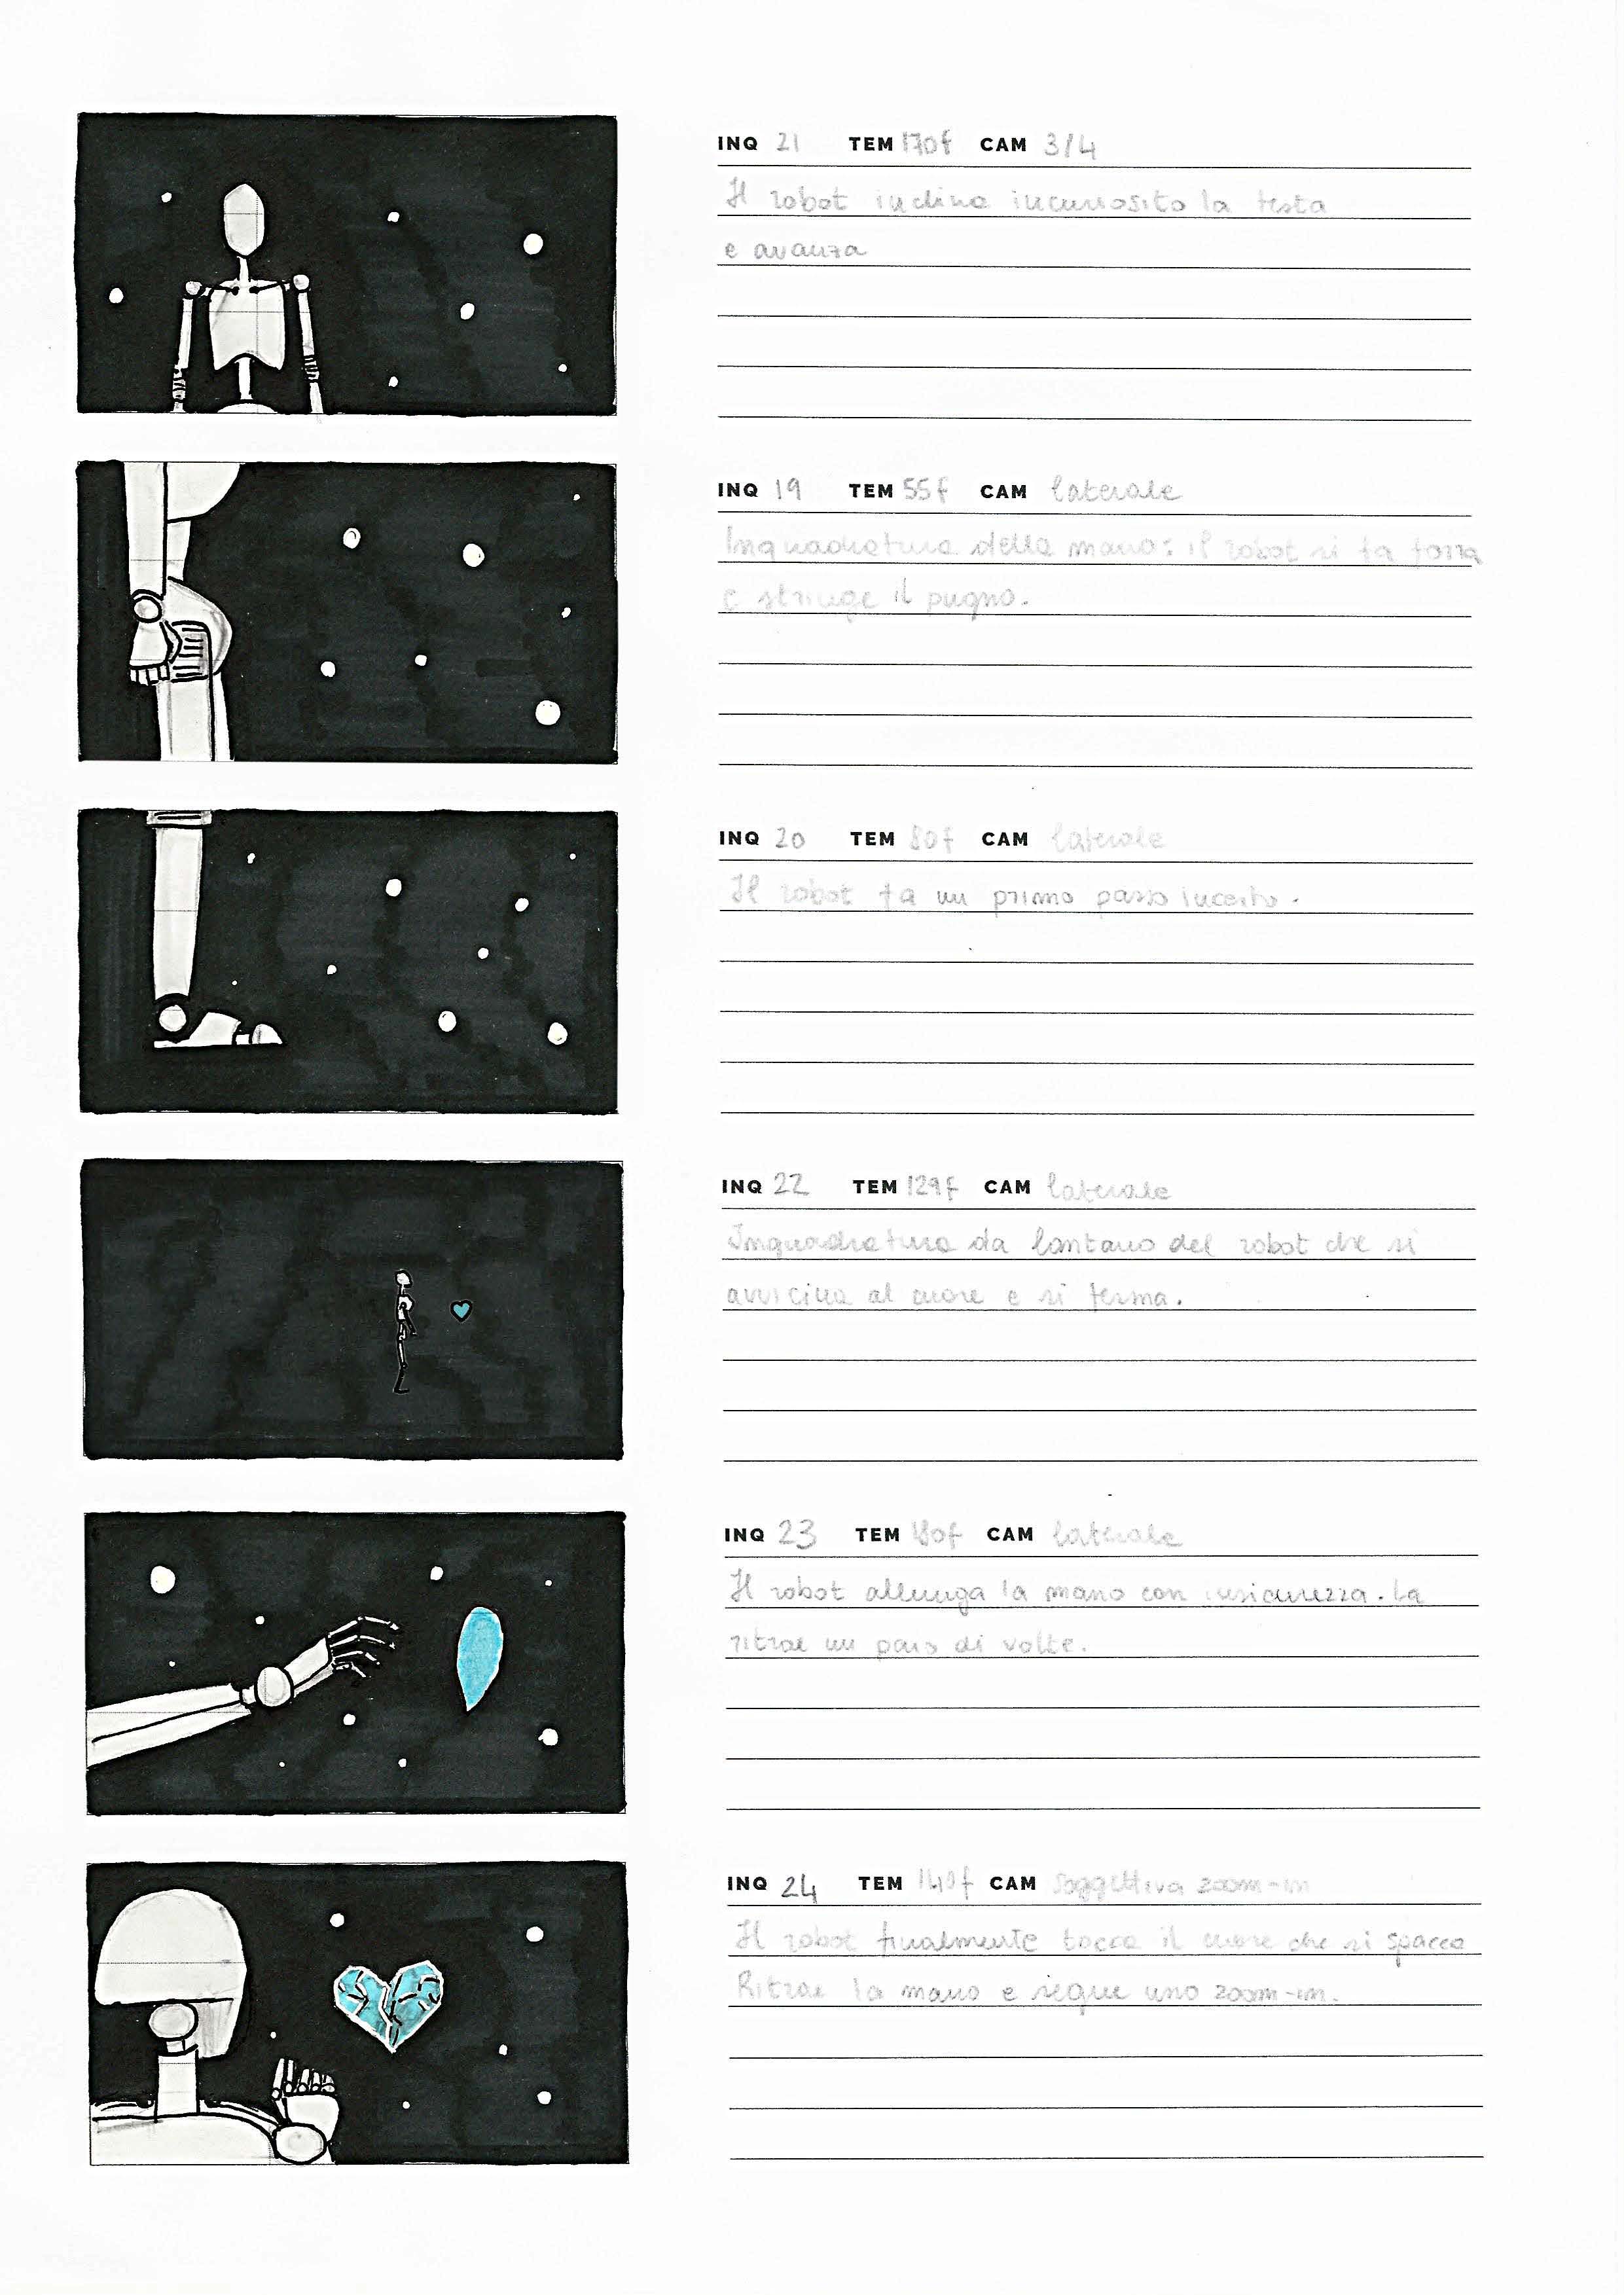 INQ 21 TEM 170f CAM 3/4
Il robot inclina incuriosito la testa
e avanza
INQ 19 TEM 55f CAM laterale
Inquadratura della mano: il robot si fa forza
e stringe il pugno.
INQ 20 TEM 80f CAM laterale
Il robot fa un primo passo incerto.
INQ 22 TEM 129f CAM laterale
Inquadratura da lontano del robot che si
avvicina al cuore e si ferma.
INQ 23 TEM CAM laterale
Il robot allunga la mano con insicurezza. La
ritrae un paio di volte.
INQ 24 TEM 140f CAM soggettiva zoom-in
Il robot finalmente tocca il cuore che si spacca
Ritrae la mano e segue uno zoom-in.